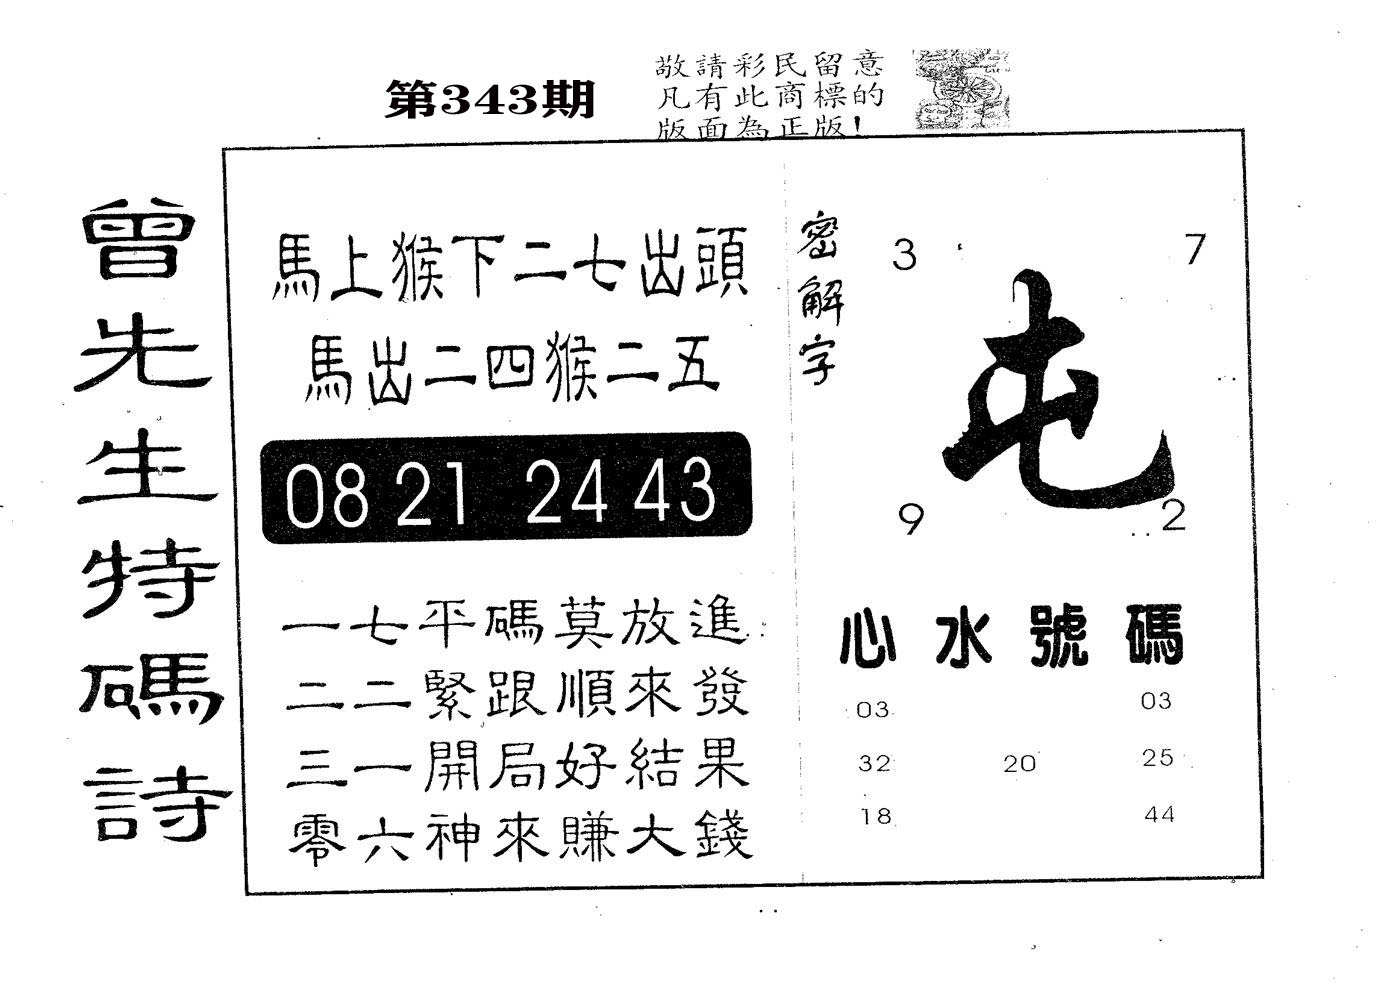 第343期
敬請彩民留意
凡有此商標的
版面為正版！
曾先生特碼詩
馬上猴下二七出頭
馬出二四猴二五
08 21 24 43
一七平碼莫放進
二二緊跟順來發
三一開局好結果
零六神來賺大錢
密解字
3 7
屯
9 2
心水號碼
03 03
32 20 25
18 44